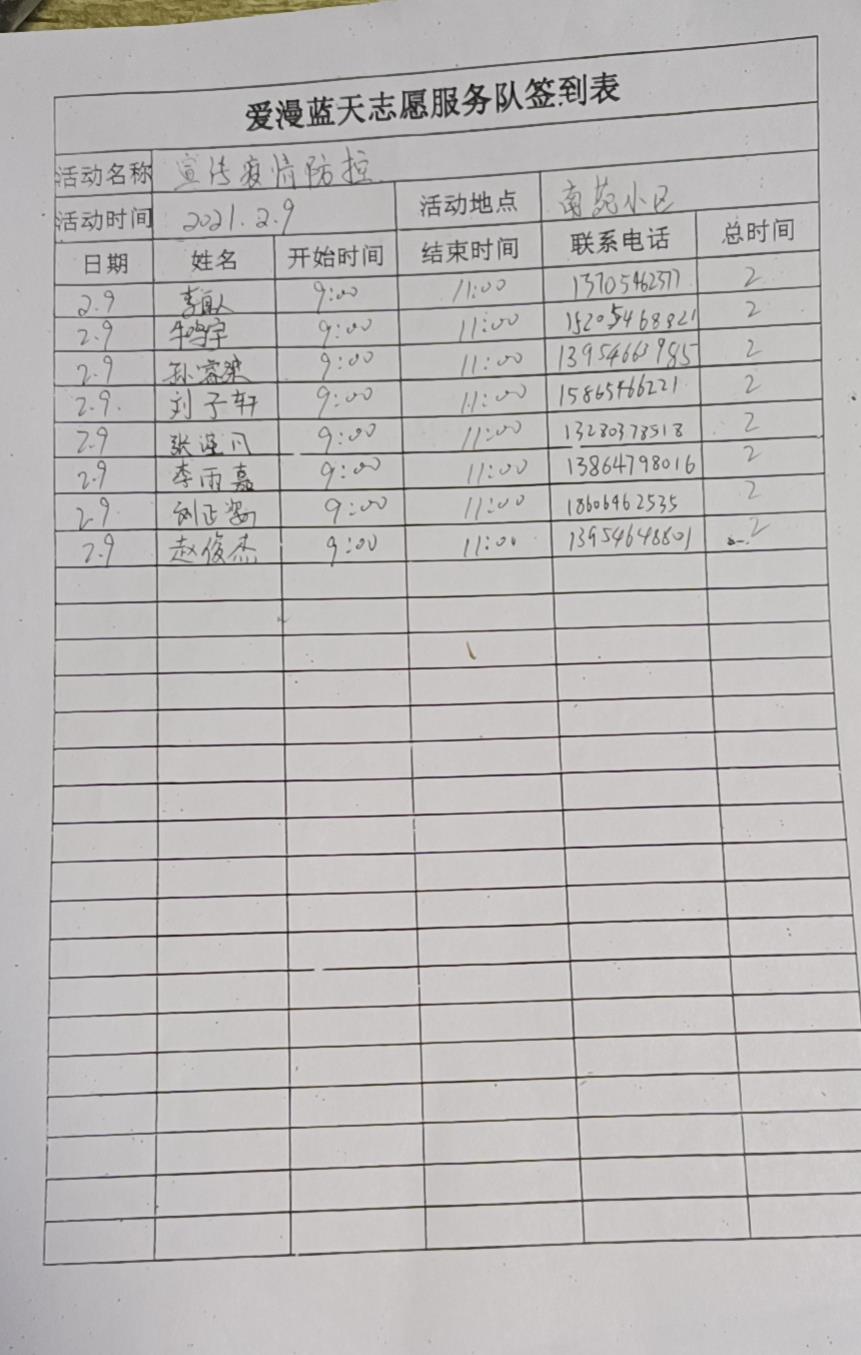 爱漫蓝天志愿服务队签到表
活动名称 宣传疫情防控
活动时间 2021.2.9 活动地点 南苑小区
日期 姓名 开始时间 结束时间 联系电话 总时间
2.9 9:00 11:00 13705462377 2
2.9 牛鸣宇 9:00 11:00 15205468821 2
2.9 9:00 11:00 13954663985 2
2.9. 刘子轩 9:00 11:00 15865466221 2
2.9 9:00 11:00 13280378518 2
2.9 李雨嘉 9:00 11:00 13864798016 2
2.9 9:00 11:00 18606462535 2
2.9 赵俊杰 9:00 11:00 13954648801 2